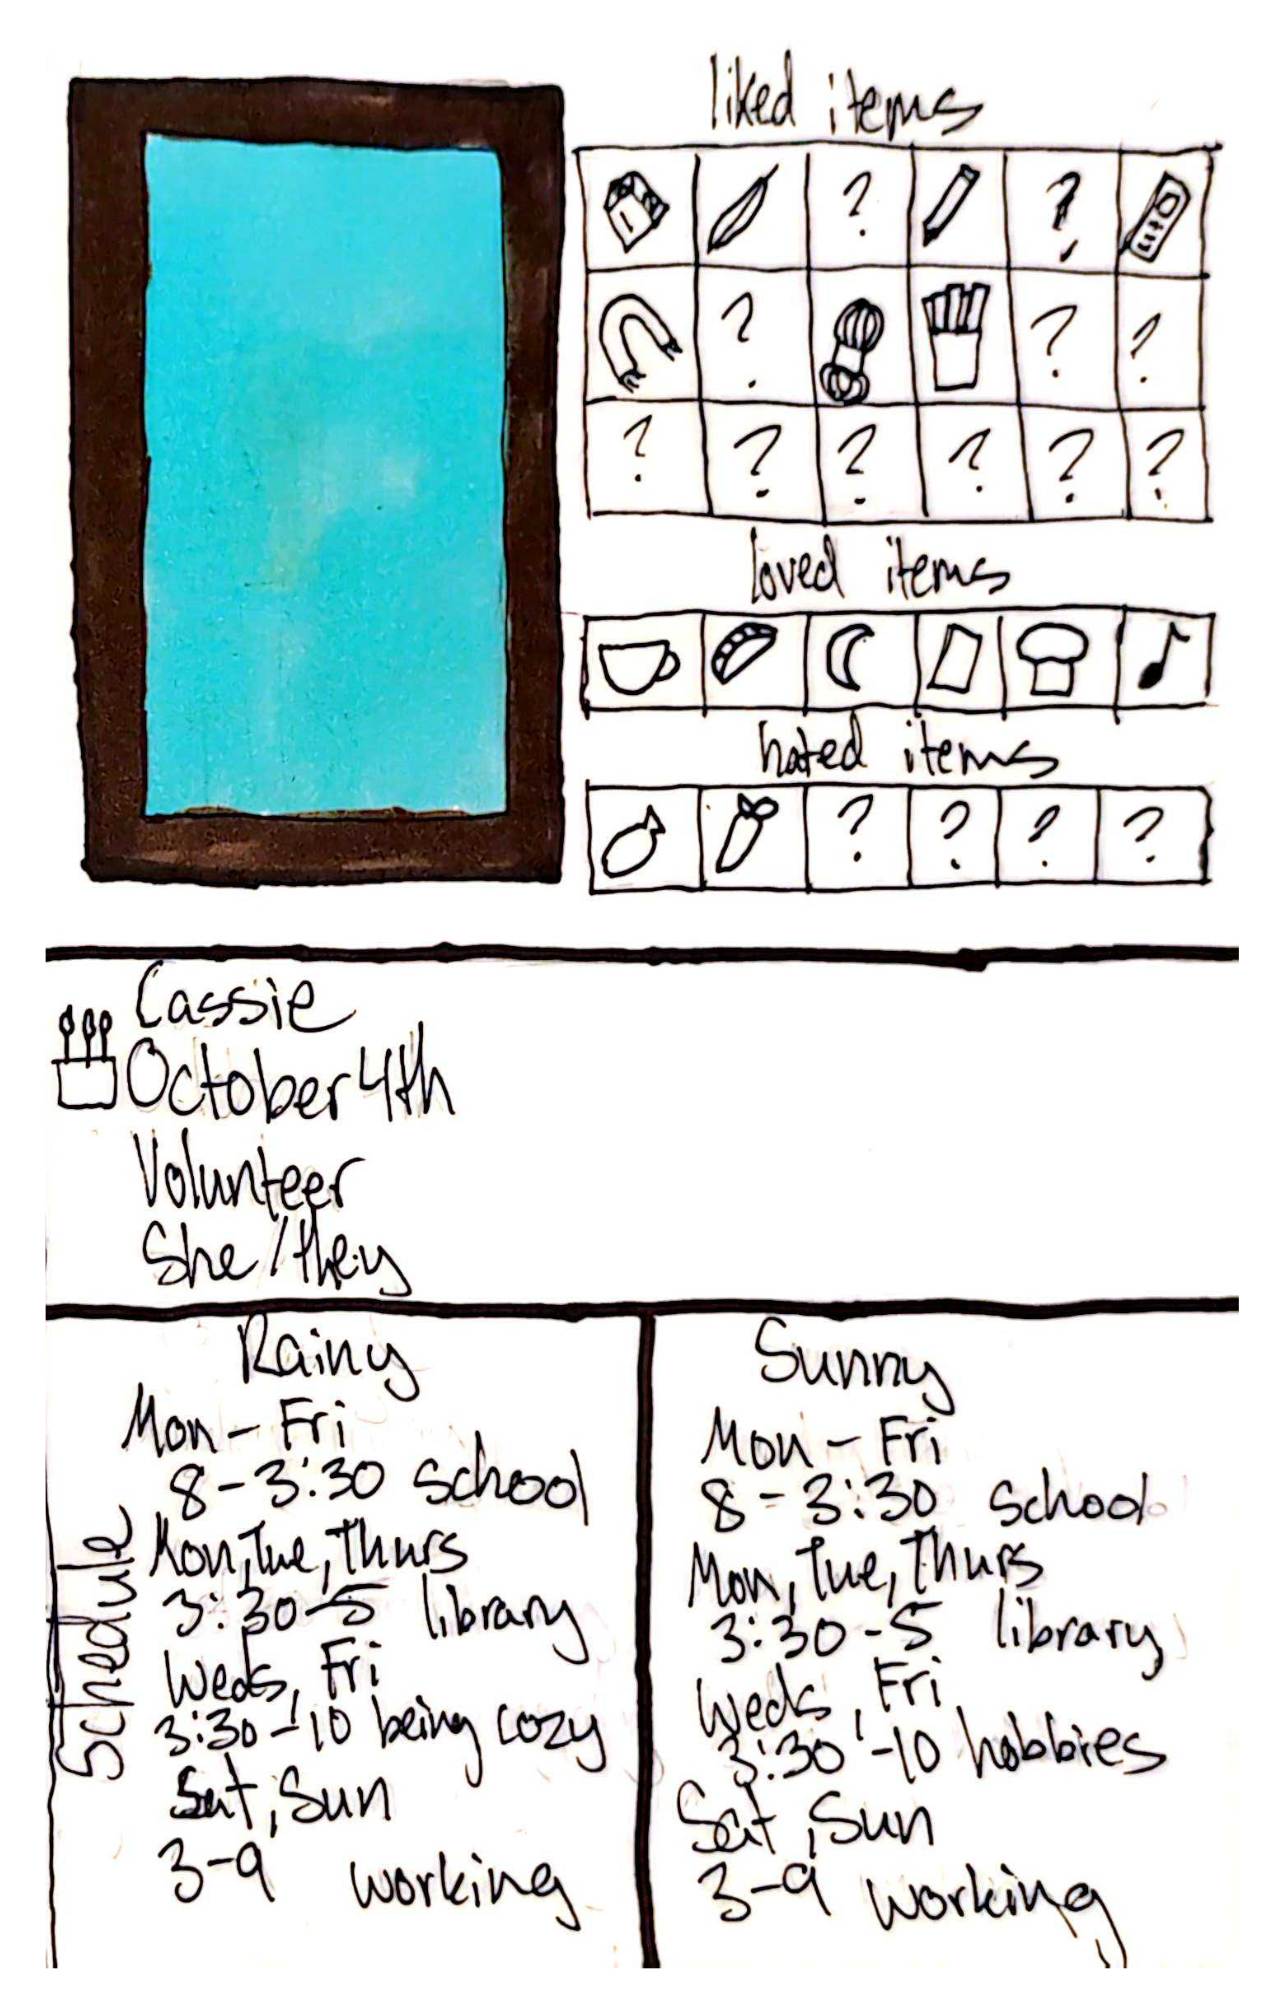 liked items
? ?
? ? ?
? ? ? ? ? ?
loved items
hated items
? ? ? ?
Cassie
October 4th
Volunteer
She/they
Rainy
Mon-Fri
8-3:30 school
Mon, Tue, Thurs
3:30-5 library
Weds, Fri
3:30-10 being cozy
Sat, Sun
3-9 working
Schedule
Sunny
Mon-Fri
8-3:30 school
Mon, Tue, Thurs
3:30-5 library
Weds, Fri
3:30-10 hobbies
Sat, Sun
3-9 working